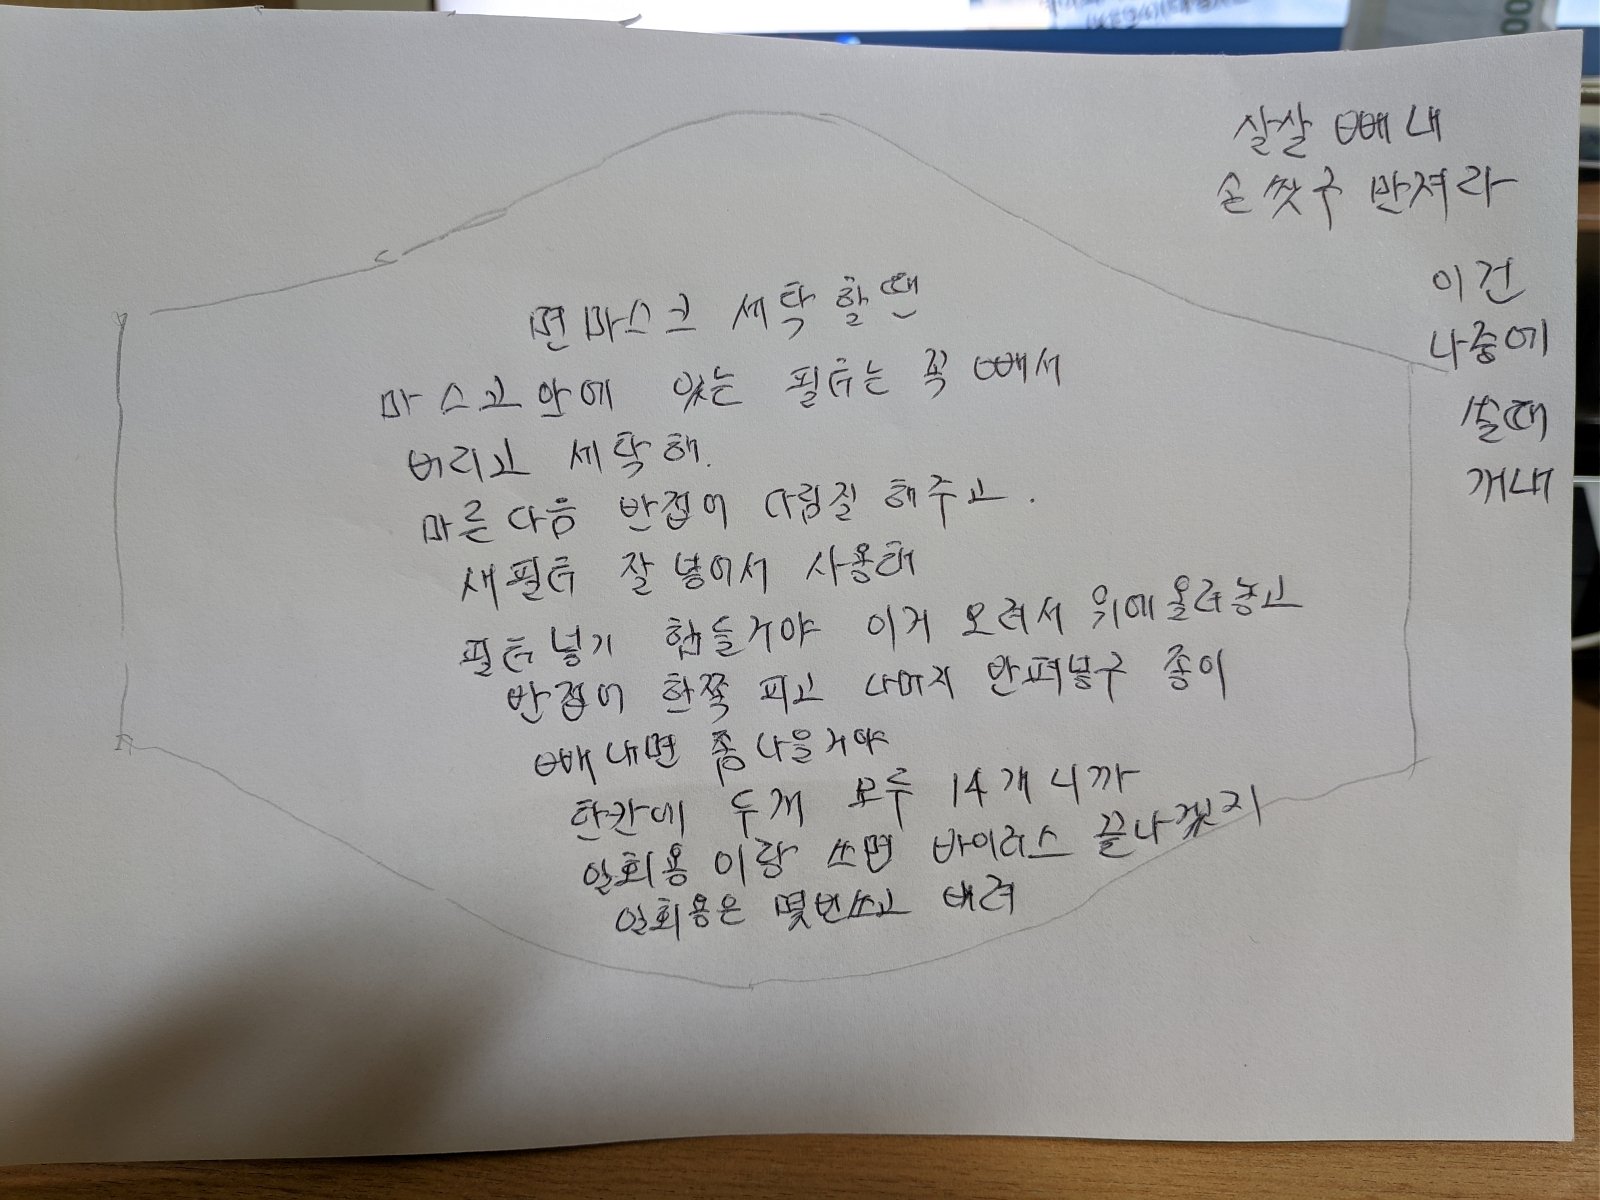 살살 빼내
손 씻구 만져라
이건
나중에
쓸때
꺼내
면마스크 세탁 할땐
마스크 안에 있는 필터는 꼭 빼서
버리고 세탁해.
마른 다음 반접어 다림질 해주고.
새필터 잘 넣어서 사용해
필터 넣기 힘들거야 이거 오려서 위에 올려놓고
반접어 한쪽 피고 나머지 반펴넣구 종이
빼내면 좀 나을거야
한칸에 두개 모두 14개니까
일회용이랑 쓰면 바이러스 끝나겠지
일회용은 몇번쓰고 버려